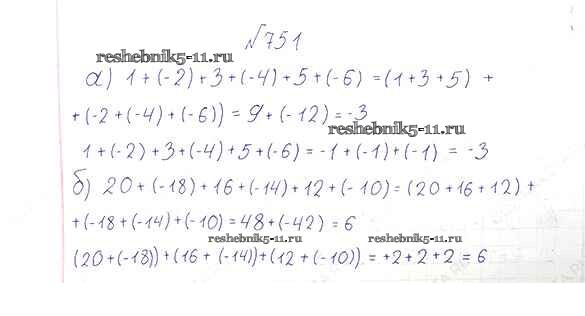 №751
reshebnik5-11.ru
а) 1 + (-2) + 3 + (-4) + 5 + (-6) = (1 + 3 + 5) +
+ (-2 + (-4) + (-6)) = 9 + (-12) = -3
reshebnik5-11.ru
1 + (-2) + 3 + (-4) + 5 + (-6) = -1 + (-1) + (-1) = -3
б) 20 + (-18) + 16 + (-14) + 12 + (-10) = (20 + 16 + 12) +
+ (-18 + (-14) + (-10) = 48 + (-42) = 6
reshebnik5-11.ru reshebnik5-11.ru
(20 + (-18)) + (16 + (-14)) + (12 + (-10)) = +2 + 2 + 2 = 6